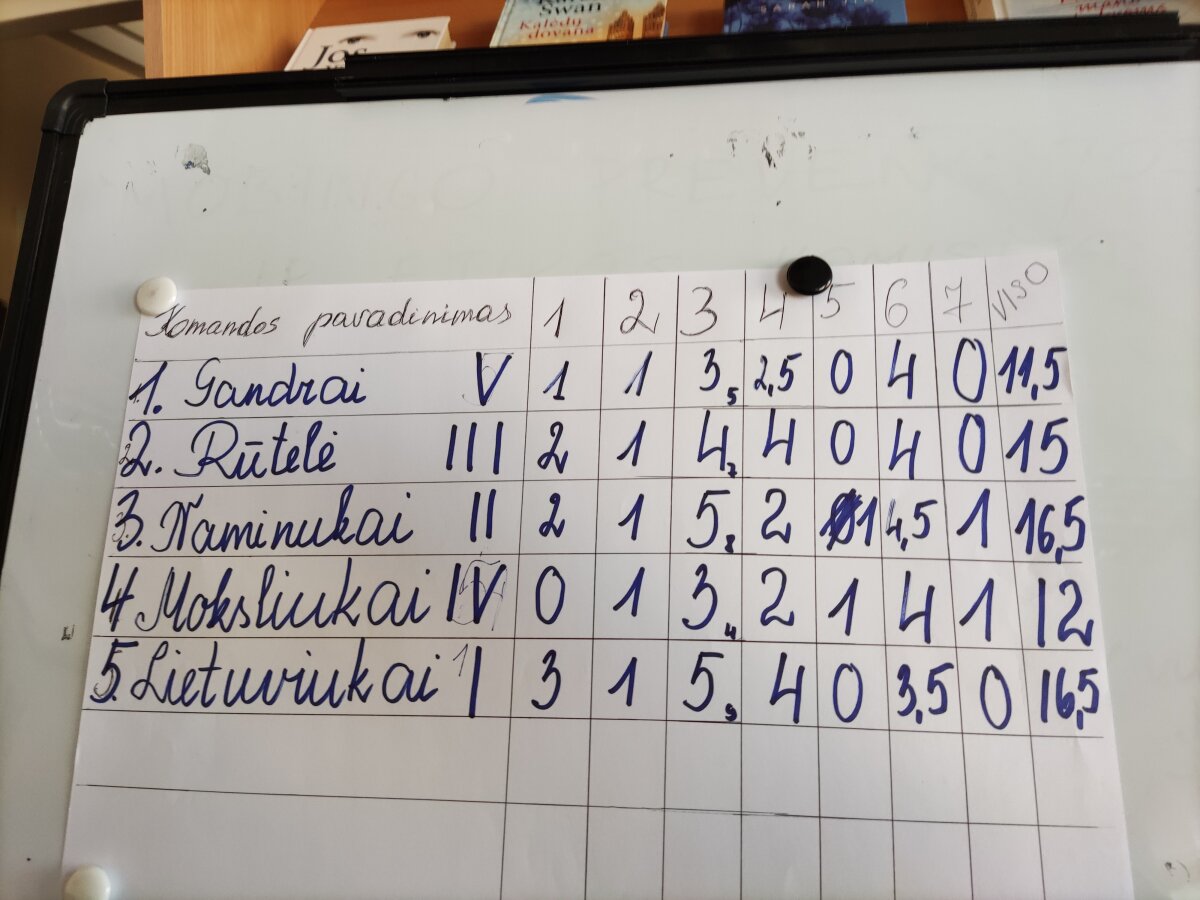 Swan
Kalėdų
dovana
Komandos pavadinimas 1 2 3 4 5 6 7 VISO
1. Gandrai V 1 1 3,5 2,5 0 4 0 11,5
2. Rūtelė III 2 1 4,7 4 0 4 0 15
3. Naminukai II 2 1 5,8 2 1 4,5 1 16,5
4 Moksliukai IV 0 1 3,4 2 1 4 1 12
5. Lietuviukai I 3 1 5,9 4 0 3,5 0 16,5